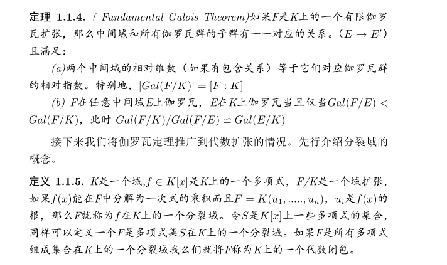 定理 1.1.4. ( Fundamental Galois Theorem)如果F是K上的一个有限伽罗
瓦扩张，那么中间域和所有伽罗瓦群的子群有一一对应的关系。(E → E')
且满足：
(a)两个中间域的相对维数（如果有包含关系）等于它们对应伽罗瓦群
的相对指数。特别地，|Gal(F/K)| = [F : K]
(b) F在任意中间域E上伽罗瓦，E在K上伽罗瓦当且仅当Gal(F/E) <
Gal(F/K)，此时 Gal(F/K)/Gal(F/E) = Gal(E/K)
接下来我们将伽罗瓦定理推广到代数扩张的情况。先行介绍分裂域的
概念。
定义 1.1.5. K是一个域，f ∈ K[x]是K上的一个多项式，F/K是一个域扩张，
如果f(x)能在F中分解为一次式的乘积而且F = K(u1, ...., un)，ui是f(x)的
根，那么F就称为f在K上的一个分裂域。令S是K[x]上一些多项式的集合，
同样可以定义一个F是多项式集S在K上的一个分裂域。如果F是所有多项式
组成集合在K上的一个分裂域我们就将F称为K上的一个代数闭包。